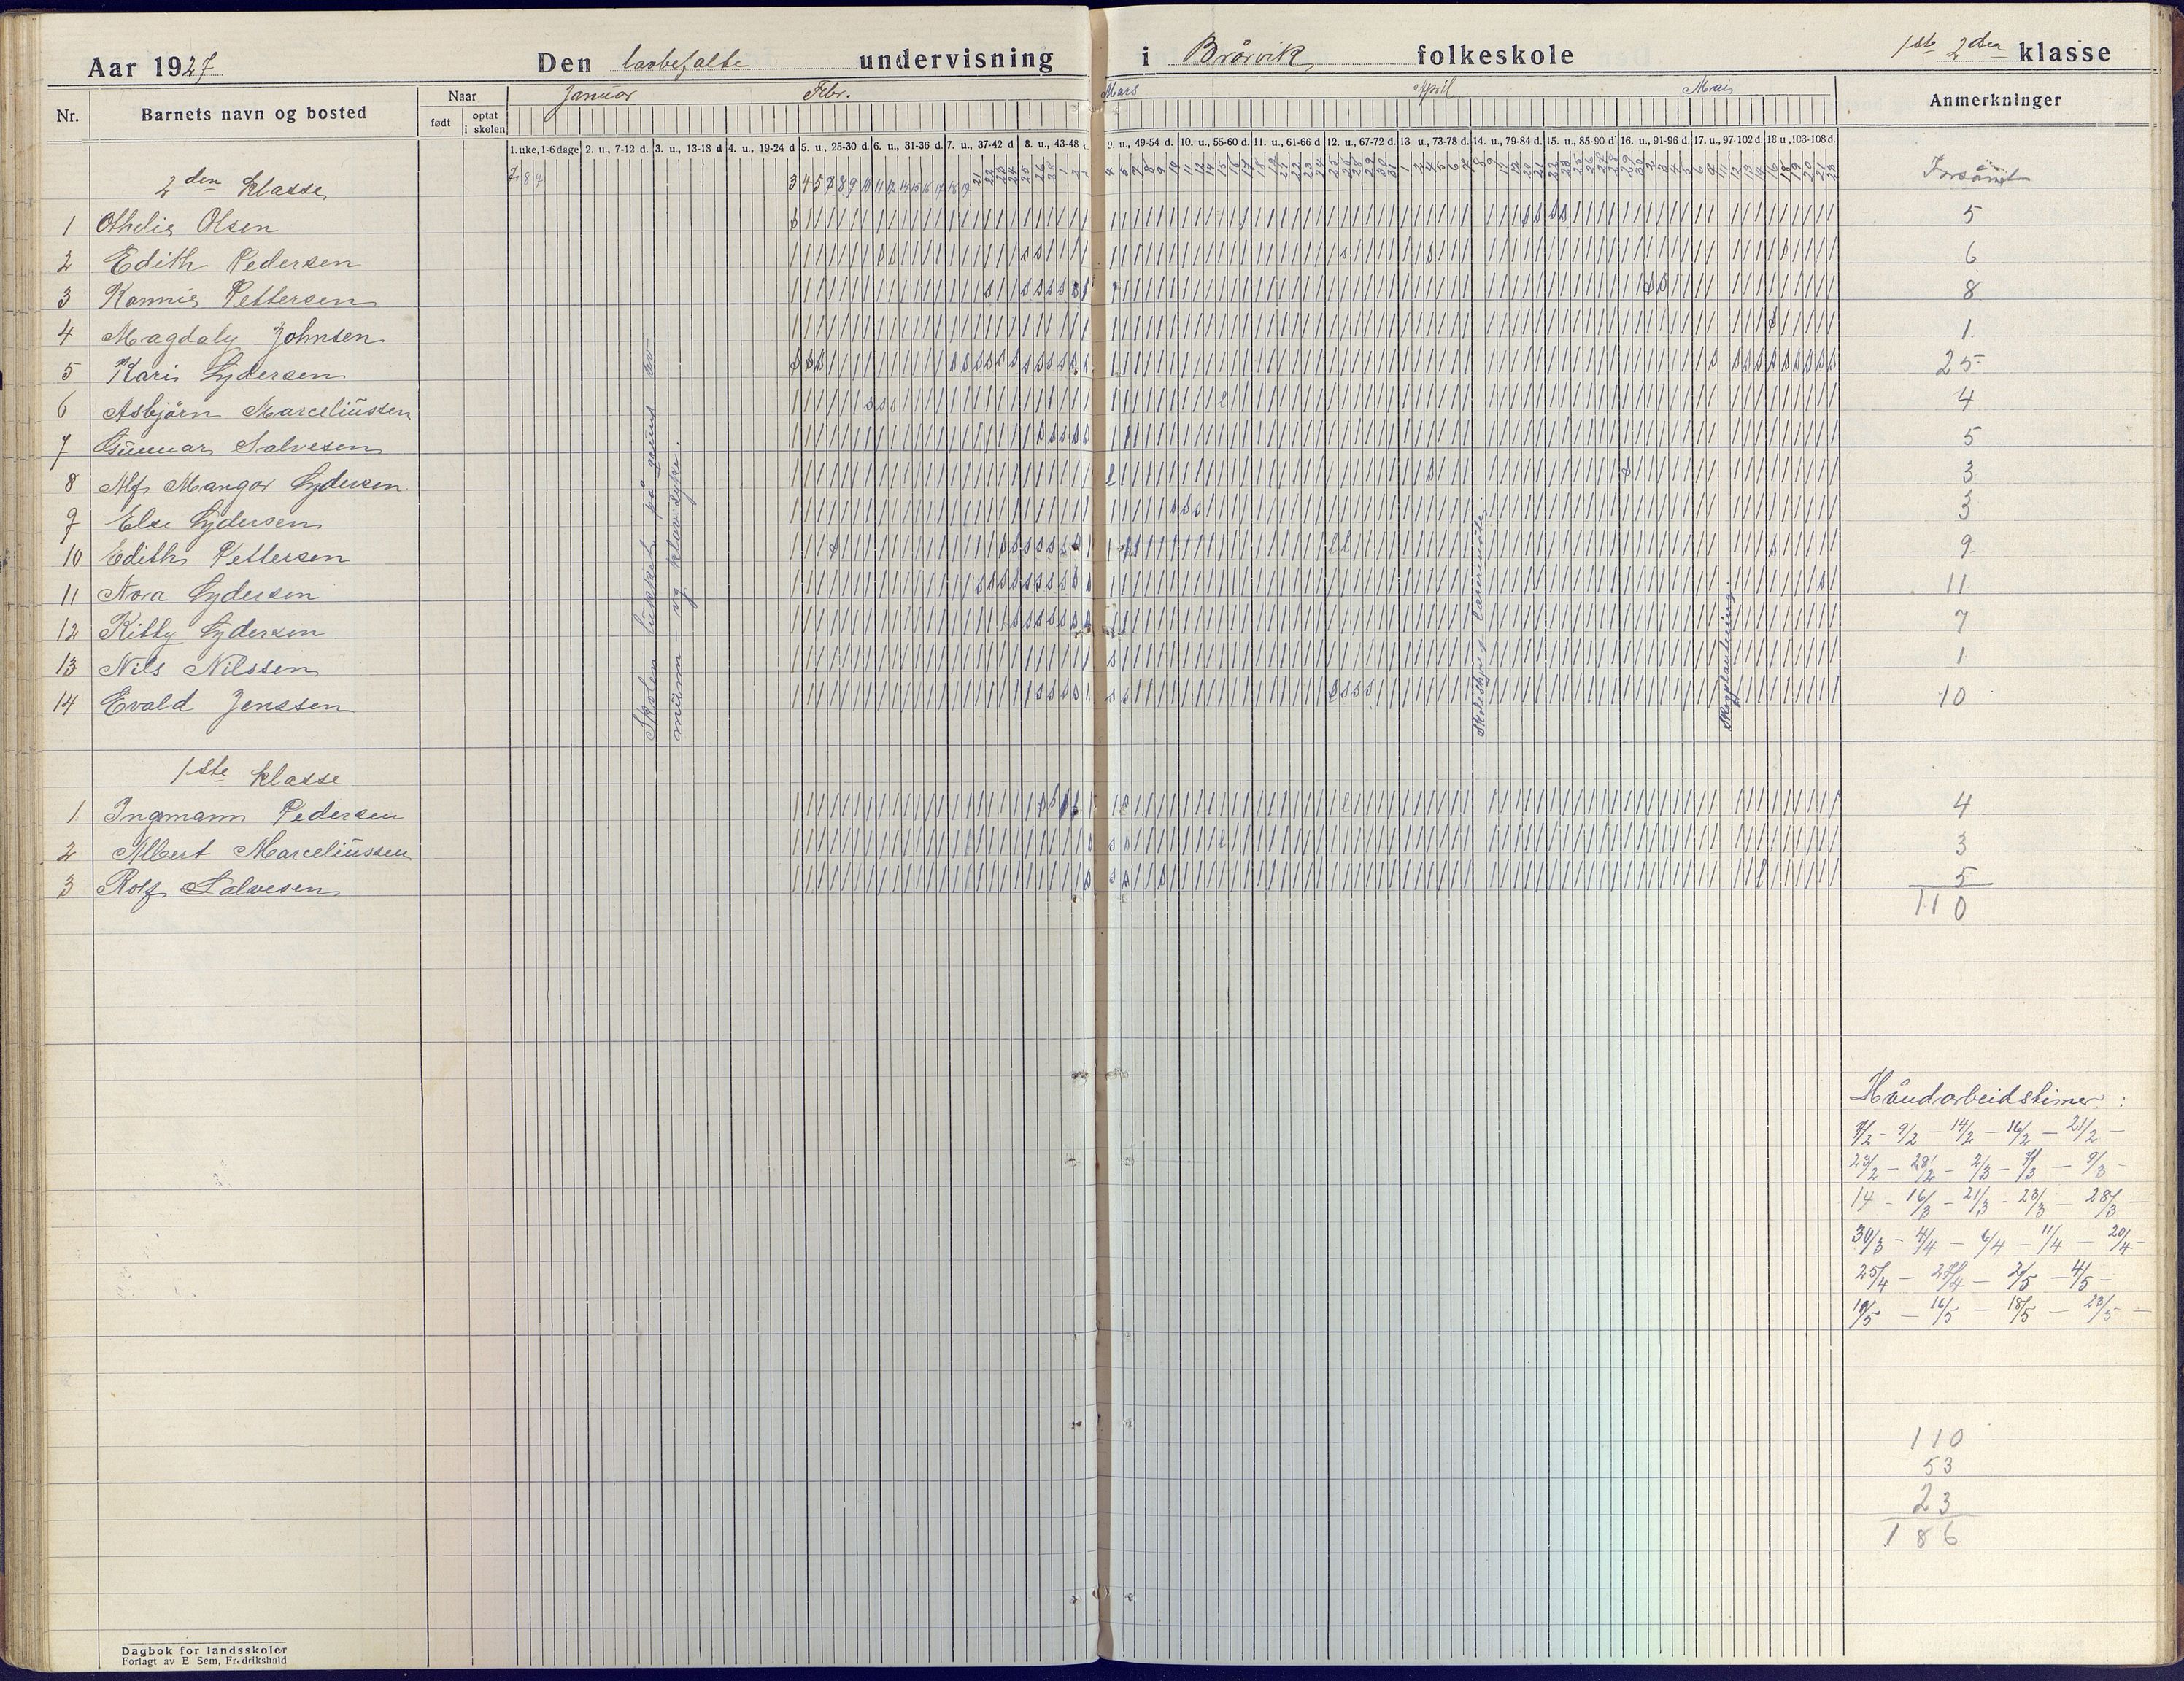 Aar 1927 Den lovbefalte undervisning i Brårvik folkeskole 1ste 2den klasse
Nr. Barnets navn og bosted Naar født optat i skolen Januar Febr. Mars April Mai Anmerkninger
1. uke, 1-6 dage 2. u., 7-12 d. 3. u., 13-18 d 4. u., 19-24 d 5. u., 25-30 d. 6. u., 31-36 d. 7. u., 37-42 d 8. u., 43-48 d 9. u., 49-54 d. 10. u., 55-60 d. 11. u., 61-66 d. 12. u., 67-72 d. 13 u., 73-78 d. 14. u., 79-84 d. 15. u., 85-90 d 16. u., 91-96 d. 17. u., 97-102 d. 18 u., 103-108 d.
2den klasse 7 8 9 3 4 5 7 8 9 10 11 12 14 15 16 17 18 19 21 22 23 24 25 26 28 1 2 3 Forsømt
1 Othelie Olsen 5
2 Edith Pedersen 6
3 Kannie Pettersen 8
4 Magdaly Johnsen 1
5 Karin Lydersen 25
6 Asbjörn Marceliussen 4
7 Gunnar Salvesen 5
8 Alf Mangor Lydersen 3
9 Else Lydersen 3
10 Edith Pettersen 9
11 Nora Lydersen 11
12 Kitty Lydersen 7
13 Nils Nilssen 1
14 Evald Jenssen 10
Skolen lukket på grunn av
munn og klovsyke.
Skolestyres læremøte
Skogplantning
1ste klasse
1 Ingmann Pedersen 4
2 Albert Marceliussen 3
3 Rolf Salvesen 5
110
Håndarbeidstimer :
7/2 - 9/2 - 14/2 - 16/2 - 21/2 -
23/2 - 28/2 - 2/3 - 7/3 - 9/3 -
14 - 16/3 - 21/3 - 23/3 - 28/3 -
30/3 - 4/4 - 6/4 - 11/4 - 20/4 -
25/4 - 27/4 - 2/5 - 4/5 -
11/5 - 16/5 - 18/5 - 23/5 -
110
53
23
186
Dagbok for landsskoler
Forlagt av E Sem, Fredrikshald